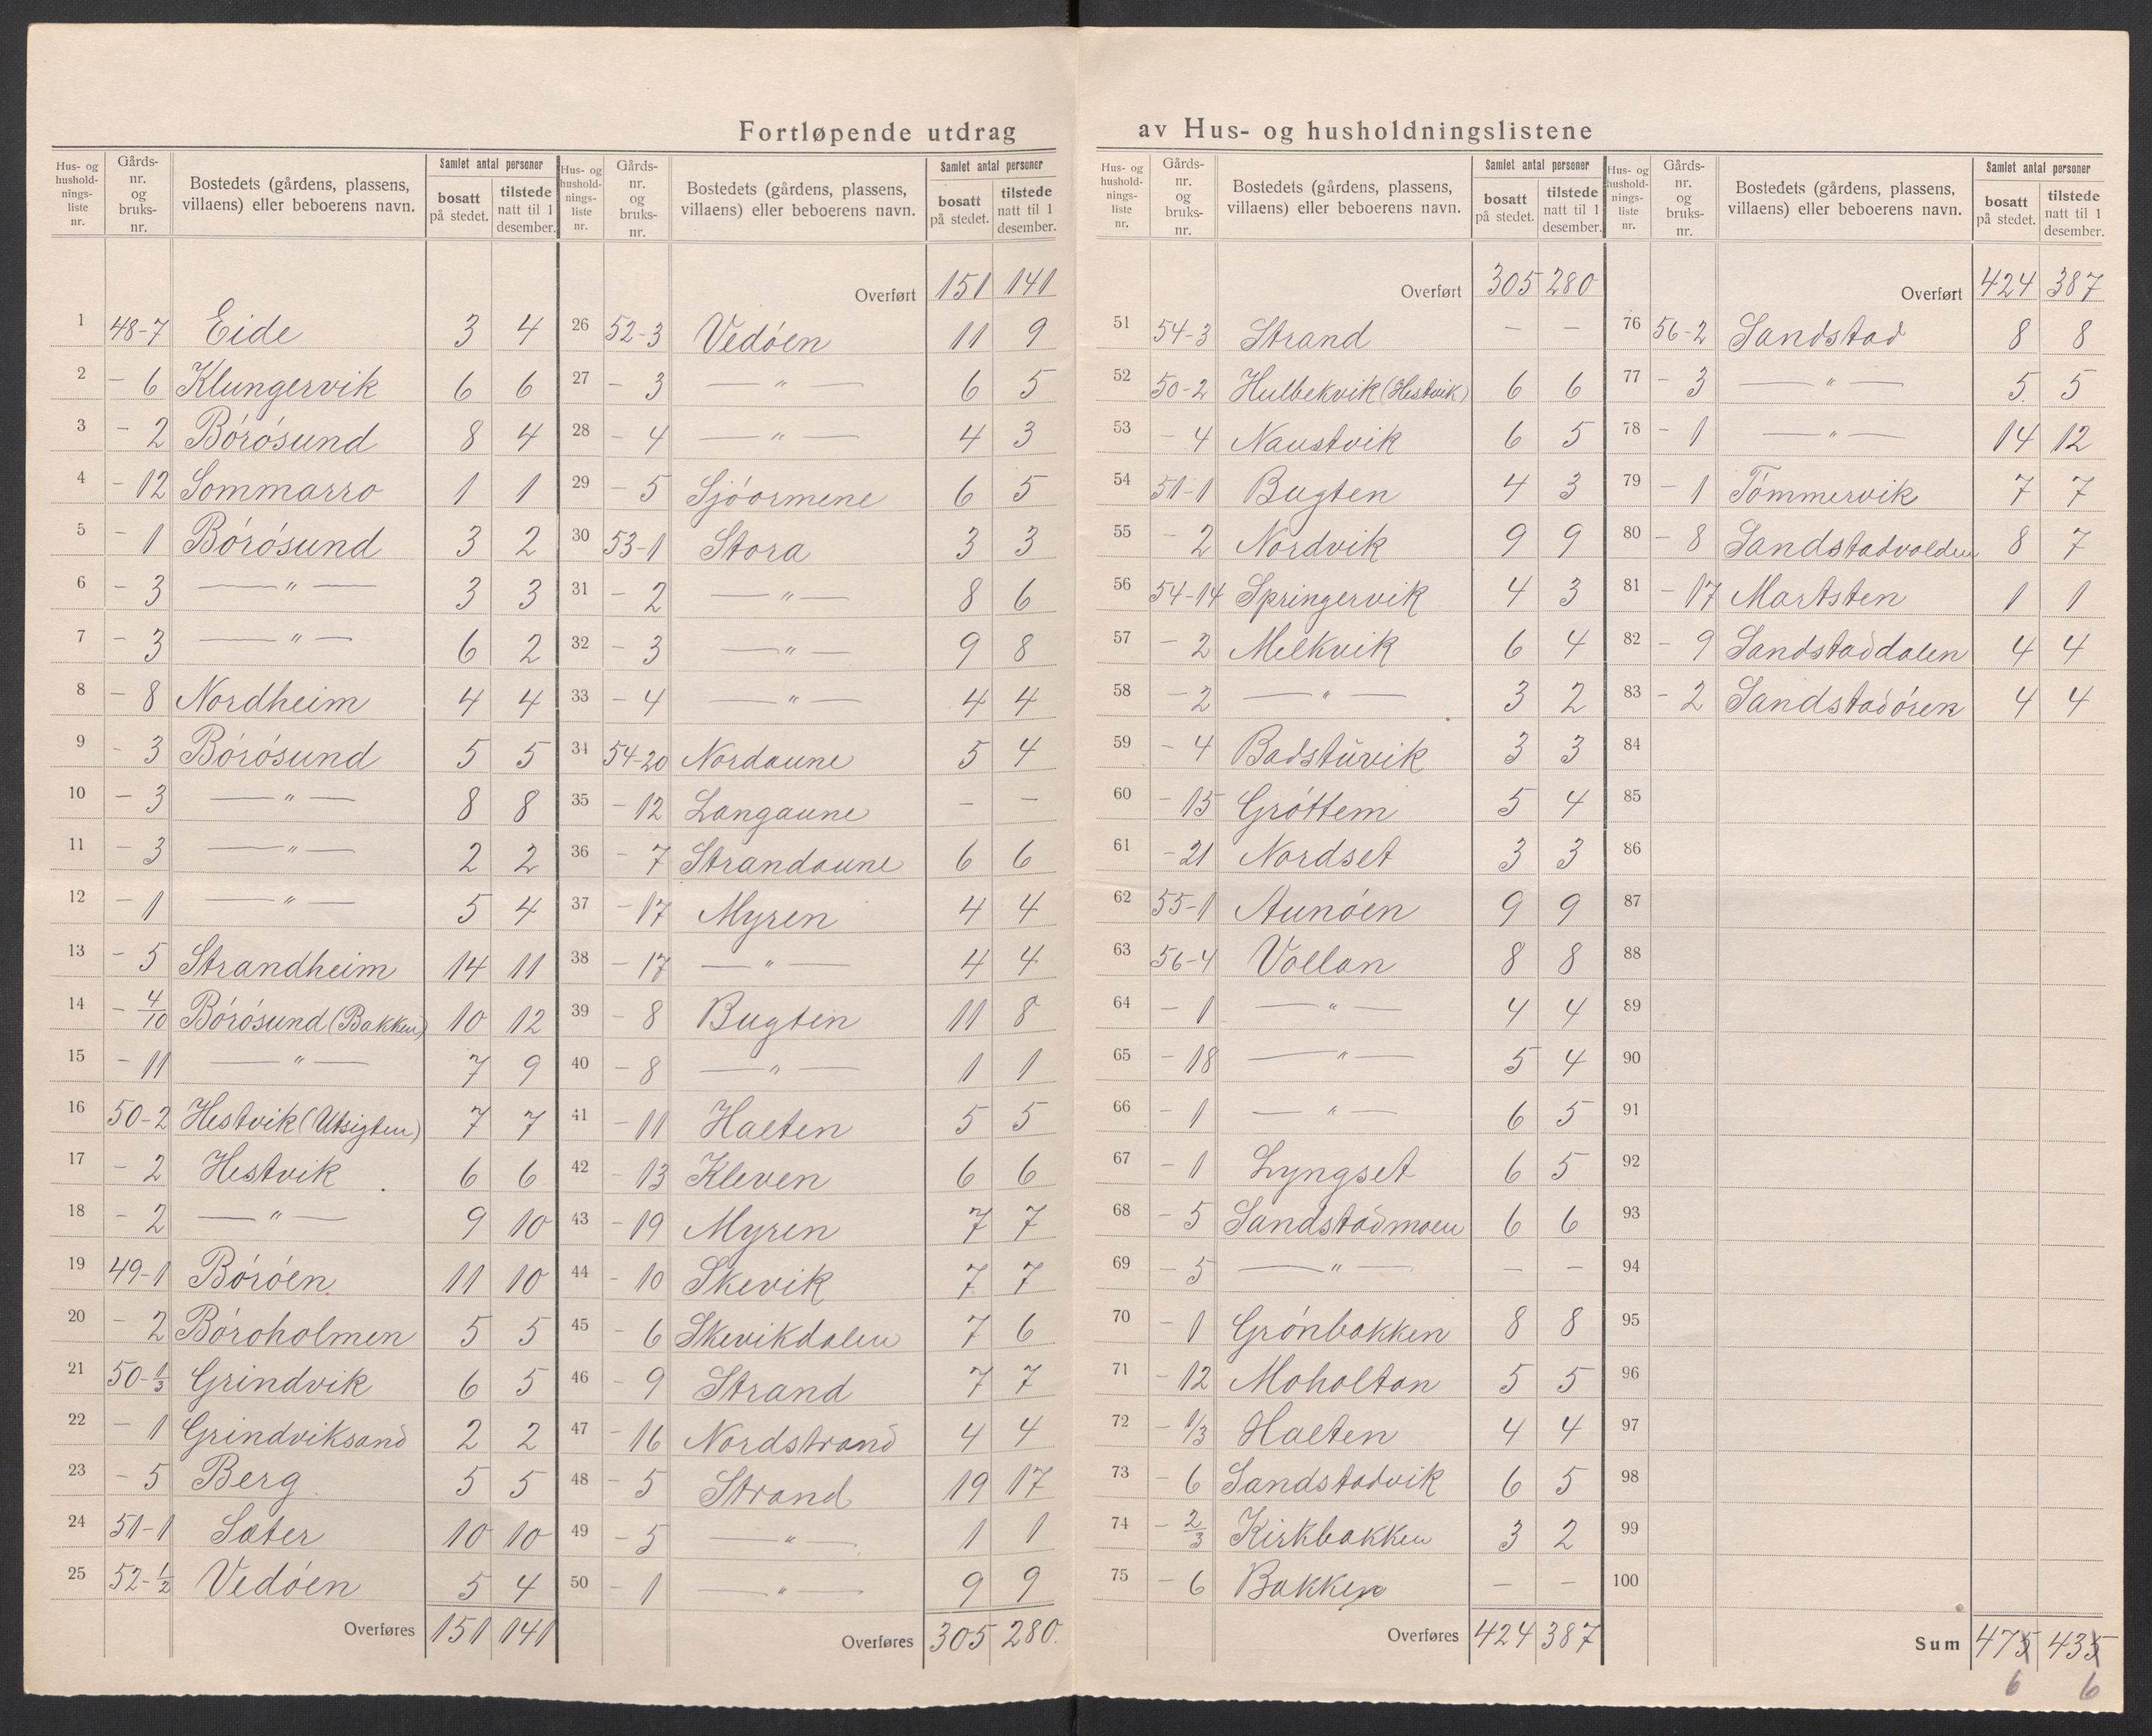 Fortløpende utdrag av Hus- og husholdningslistene
Hus- og hushold-nings-liste nr. | Gårds-nr. og bruks-nr. | Bostedets (gårdens, plassens, villaens) eller beboerens navn. | Samlet antal personer | bosatt på stedet. | tilstede natt til 1 desember.
1 48-7 Eide 3 4
2 - 6 Klungervik 6 6
3 - 2 Börösund 8 4
4 - 12 Sommarro 1 1
5 - 1 Börösund 3 2
6 - 3 — " — 3 3
7 - 3 — " — 6 2
8 - 8 Nordheim 4 4
9 - 3 Börösund 5 5
10 - 3 — " — 8 8
11 - 3 — " — 2 2
12 - 1 — " — 5 4
13 - 5 Strandheim 14 11
14 - 4/10 Börösund (Bakken) 10 12
15 - 11 — " — 7 9
16 50-2 Hestvik (Utsigten) 7 7
17 - 2 Hestvik 6 6
18 - 2 — " — 9 10
19 49-1 Böröen 11 10
20 - 2 Böroholmen 5 5
21 50-1/3 Grindvik 6 5
22 - 1 Grindviksand 2 2
23 - 5 Berg 5 5
24 51-1 Sæter 10 10
25 52-1/2 Vedöen 5 4
Overføres 151 141
Hus- og hushold-nings-liste nr. | Gårds-nr. og bruks-nr. | Bostedets (gårdens, plassens, villaens) eller beboerens navn. | Samlet antal personer | bosatt på stedet. | tilstede natt til 1 desember.
Overført 151 141
26 52-3 Vedöen 11 9
27 - 3 — " — 6 5
28 - 4 — " — 4 3
29 - 5 Sjöormene 6 5
30 53-1 Stora 3 3
31 - 2 — " — 8 6
32 - 3 — " — 9 8
33 - 4 — " — 4 4
34 54-20 Nordaune 5 4
35 - 12 Langaune – –
36 - 7 Strandaune 6 6
37 - 17 Myren 4 4
38 - 17 — " — 4 4
39 - 8 Bugten 11 8
40 - 8 — " — 1 1
41 - 11 Halten 5 5
42 - 13 Kleven 6 6
43 - 19 Myren 7 7
44 - 10 Skevik 7 7
45 - 6 Skevikdalen 7 6
46 - 9 Strand 7 7
47 - 16 Nordstrand 4 4
48 - 5 Strand 19 17
49 - 5 — " — 1 1
50 - 1 — " — 9 9
Overføres 305 280.
Hus- og hushold-nings-liste nr. | Gårds-nr. og bruks-nr. | Bostedets (gårdens, plassens, villaens) eller beboerens navn. | Samlet antal personer | bosatt på stedet. | tilstede natt til 1 desember.
Overført 305 280
51 54-3 Strand – –
52 50-2 Hulbekvik (Hestvik) 6 6
53 - 4 Naustvik 6 5
54 51-1 Bugten 4 3
55 - 2 Nordvik 9 9
56 54-14 Springervik 4 3
57 - 2 Melkvik 6 4
58 - 2 — " — 3 2
59 - 4 Badstŭvik 3 3
60 - 15 Gröttem 5 4
61 - 21 Nordset 3 3
62 55-1 Aunöen 9 9
63 56-4 Vollan 8 8
64 - 1 — " — 4 4
65 - 18 — " — 5 4
66 - 1 — " — 6 5
67 - 1 Lyngset 6 5
68 - 5 Sandstadmoen 6 6
69 - 5 — " — – –
70 - 1 Grönbakken 8 8
71 - 12 Moholtan 5 5
72 - 1/3 Halten 4 4
73 - 6 Sandstadvik 6 5
74 - 2/3 Kirkbakken 3 2
75 - 6 Bakken – –
Overføres 424 387
Hus- og hushold-nings-liste nr. | Gårds-nr. og bruks-nr. | Bostedets (gårdens, plassens, villaens) eller beboerens navn. | Samlet antal personer | bosatt på stedet. | tilstede natt til 1 desember.
Overført 424 387
76 56-2 Sandstad 8 8
77 - 3 — " — 5 5
78 - 1 — " — 14 12
79 - 1 Tömmervik 7 7
80 - 8 Sandstadvolden 8 7
81 - 17 Martsten 1 1
82 - 9 Sandstaddalen 4 4
83 - 2 Sandstadören 4 4
84
85
86
87
88
89
90
91
92
93
94
95
96
97
98
99
100
Sum 475 435
6 6